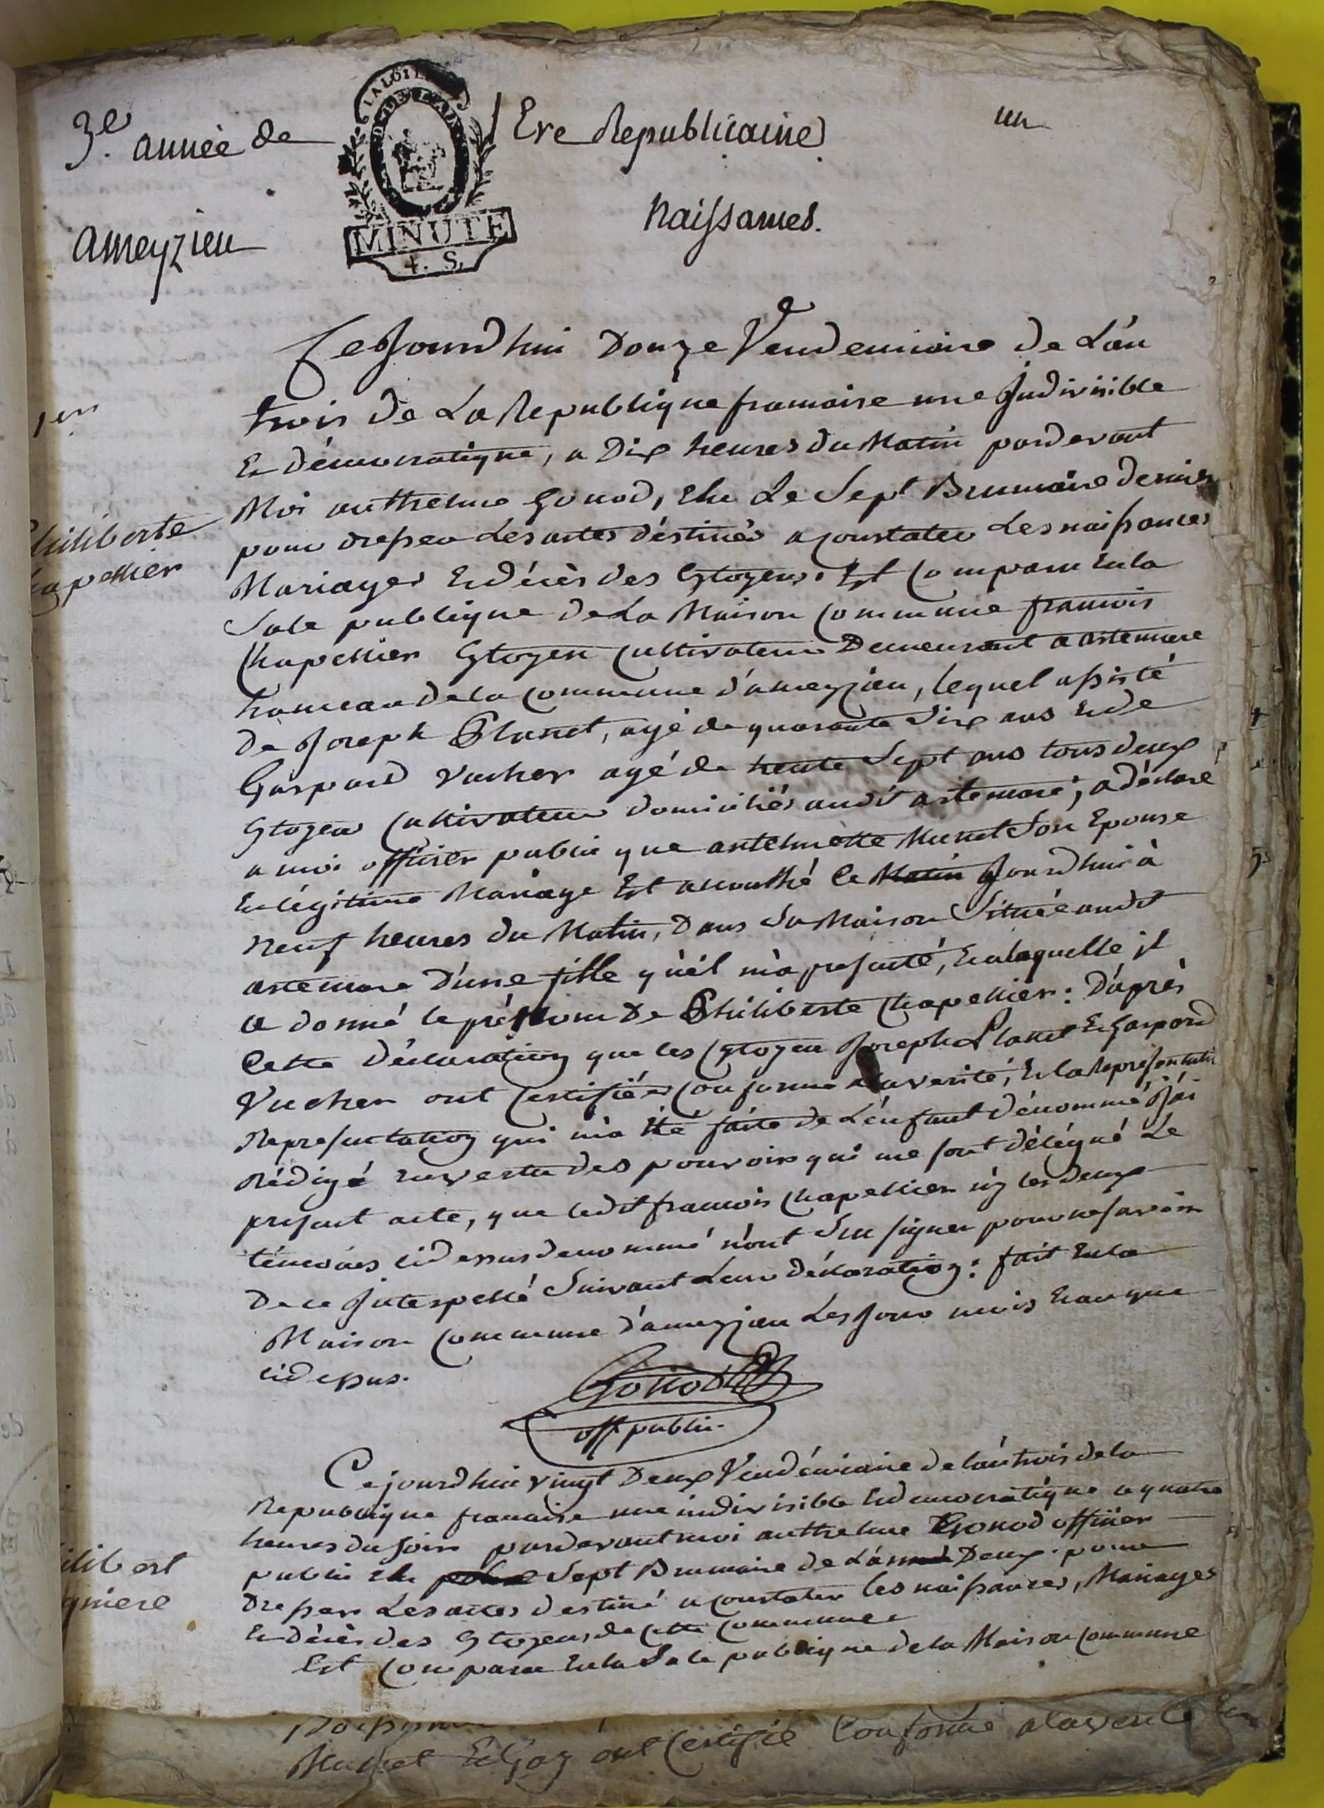 3e. année de l'Ere Republicaine
un
LA LOI LE
MINUTE
4. S.
ameyzieu
Naissances.
Cejourdhui Douze Vendemiaire de L'an
1er
trois de La Republique francaise une Indivisible
Et démocratique, a Dix heures du Matin pardevant
Moi anthelme Gonod, Elu Le Sept Brumaire dernier
Philiberte
Chapellier
pour dresser Les actes déstinés a constater Les naissances
Mariages Et décès des Citoyens. Est Comparu En la
Sale publique de La Maison Commune francois
Chapellier Citoyen Cultivateur Demeurant a artemare
hameau de la Commune d'ameyzieu, lequel assisté
De Joseph Planet, agé de quarante Six ans Et de
Gaspard Vucher agé de trente Sept ans tous deux
Citoyens Cultivateurs domiciliés audit artemare; a déclaré
a moi officier public que anthelmette Munet Son Epouse
En légitime Mariage Est accouché Ce Matin Jourdhui à
neuf heures du Matin, Dans Sa Maison Située audit
artemare D'une fille qu'il m'a presenté, Et a laquelle il
a donné le prénom De Philiberte Chapellier: D'après
Cette Déclaration que les Citoyens Joseph Planet Et Gaspard
Vucher ont Certifiée Conforme a la verité, Et la Représentati
Représentation qui m'a été faite de L'enfant dénommé J'ai
Rédigé En vertu des pouvoirs qui me sont délégué Le
présent acte, que ledit francois Chapellier nÿ les deux
témoins cidessus denommé n'ont Su signer pour ne savoir
De ce Interpellé Suivant Leur déclaration: fait En la
Maison Commune d'ameyzieu Les Jour mois Et an que
cidessus.
Gonod
off public.
Ce jourdhui vingt Deux Vendémiaire de l'an trois de la
Republique francaise une indivisible Et democratique a quatre
heures du soir pardevant moi anthelme Gonod officier
public Elu Sept Brumaire de L'an Deux. pour
ilibert
gniere
Dresser Les actes destiné a constater les naissances, Mariages
Et décès des Citoyens de cette commune
Est Comparu En la Sale publique de la Maison Commune
Munet Et Goy ont Certifié Conforme a la verité